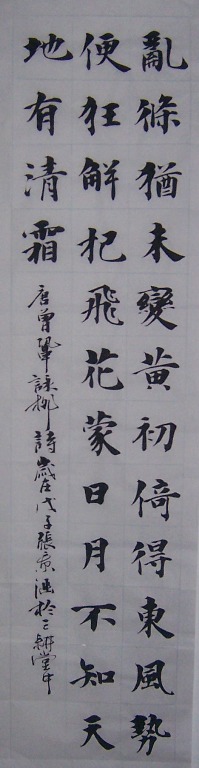 亂條猶未變黃初倚得東風勢
便狂解把飛花蒙日月不知天
地有清霜
唐曾鞏詠柳詩歲在戊子張於耕堂中